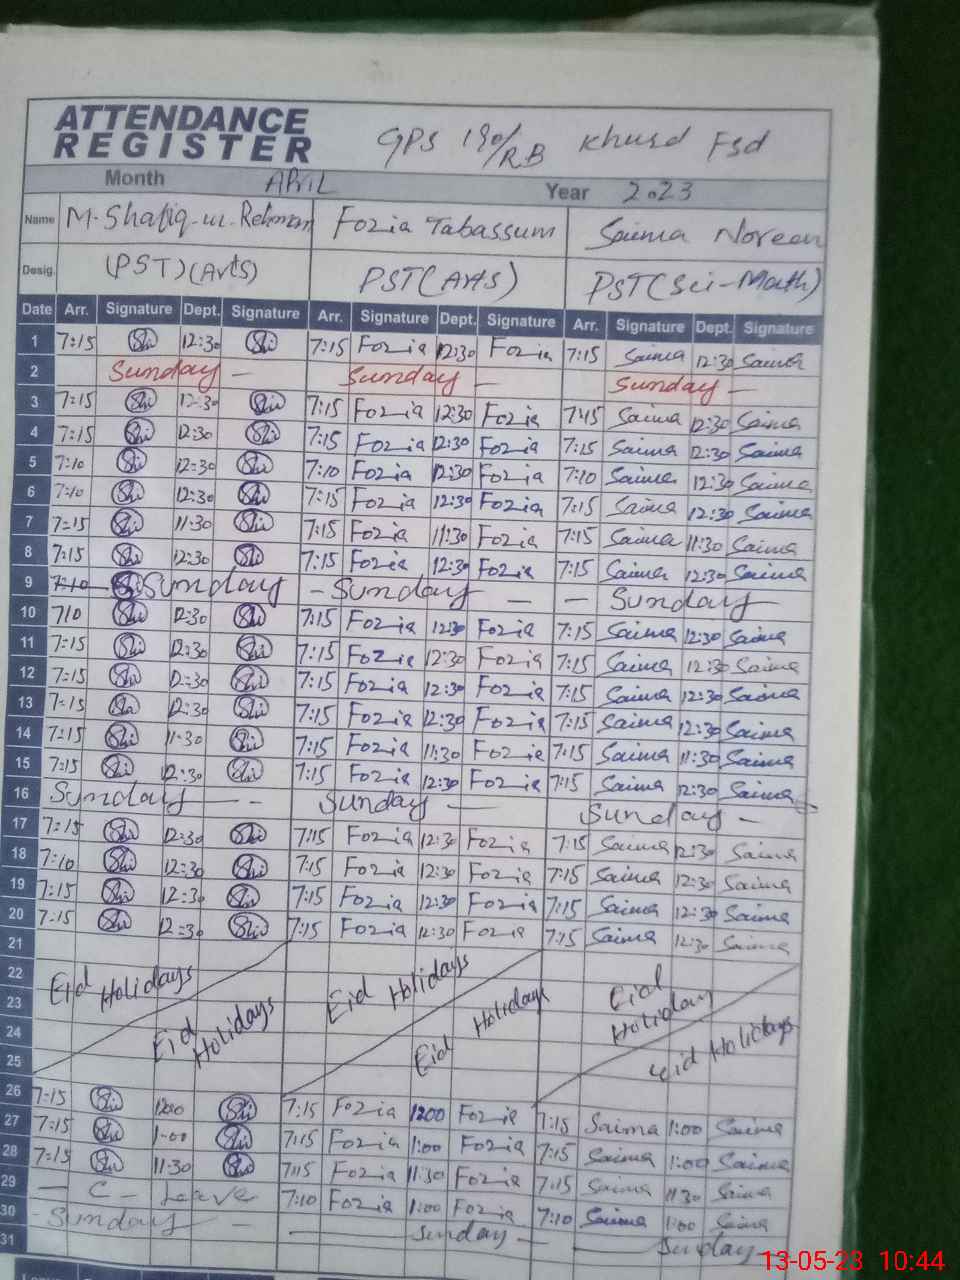 ATTENDANCE
REGISTER
GPS 190/RB Khurd Fsd
Month APRIL Year 2023
Name M-Shafiq-ur-Rehman Fozia Tabassum Saima Noreen
Desig. (PST)(Arts) PST(Arts) PST(Sci-Math)
Date Arr. Signature Dept. Signature Arr. Signature Dept. Signature Arr. Signature Dept. Signature
1 7:15 12:30 7:15 Fozia 12:30 Fozia 7:15 Saima 12:30 Saima
2 Sunday - Sunday - Sunday -
3 7:15 12:30 7:15 Fozia 12:30 Fozia 7:15 Saima 12:30 Saima
4 7:15 12:30 7:15 Fozia 12:30 Fozia 7:15 Saima 12:30 Saima
5 7:10 12:30 7:10 Fozia 12:30 Fozia 7:10 Saima 12:30 Saima
6 7:10 12:30 7:15 Fozia 12:30 Fozia 7:15 Saima 12:30 Saima
7 7:15 11:30 7:15 Fozia 11:30 Fozia 7:15 Saima 11:30 Saima
8 7:15 12:30 7:15 Fozia 12:30 Fozia 7:15 Saima 12:30 Saima
9 7:10 Sunday - Sunday - - Sunday -
10 7:10 12:30 7:15 Fozia 12:30 Fozia 7:15 Saima 12:30 Saima
11 7:15 12:30 7:15 Fozia 12:30 Fozia 7:15 Saima 12:30 Saima
12 7:15 12:30 7:15 Fozia 12:30 Fozia 7:15 Saima 12:30 Saima
13 7:15 12:30 7:15 Fozia 12:30 Fozia 7:15 Saima 12:30 Saima
14 7:15 11:30 7:15 Fozia 11:30 Fozia 7:15 Saima 11:30 Saima
15 7:15 12:30 7:15 Fozia 12:30 Fozia 7:15 Saima 12:30 Saima
16 Sunday - - Sunday - Sunday -
17 7:15 12:30 7:15 Fozia 12:30 Fozia 7:15 Saima 12:30 Saima
18 7:10 12:30 7:15 Fozia 12:30 Fozia 7:15 Saima 12:30 Saima
19 7:15 12:30 7:15 Fozia 12:30 Fozia 7:15 Saima 12:30 Saima
20 7:15 12:30 7:15 Fozia 12:30 Fozia 7:15 Saima 12:30 Saima
21
22 Eid Holidays Eid Holidays Eid Holiday
23
24 Eid Holidays Eid Holiday Eid Holidays
25
26 7:15 1200 7:15 Fozia 1200 Fozia 7:15 Saima 1:00 Saima
27 7:15 1:00 7:15 Fozia 1:00 Fozia 7:15 Saima 1:00 Saima
28 7:15 11:30 7:15 Fozia 11:30 Fozia 7:15 Saima 11:30 Saima
29 - C - Leave 7:10 Fozia 1:00 Fozia 7:10 Saima 1:00 Saima
30 - Sunday - - Sunday - Sunday -
31
13-05-23 10:44